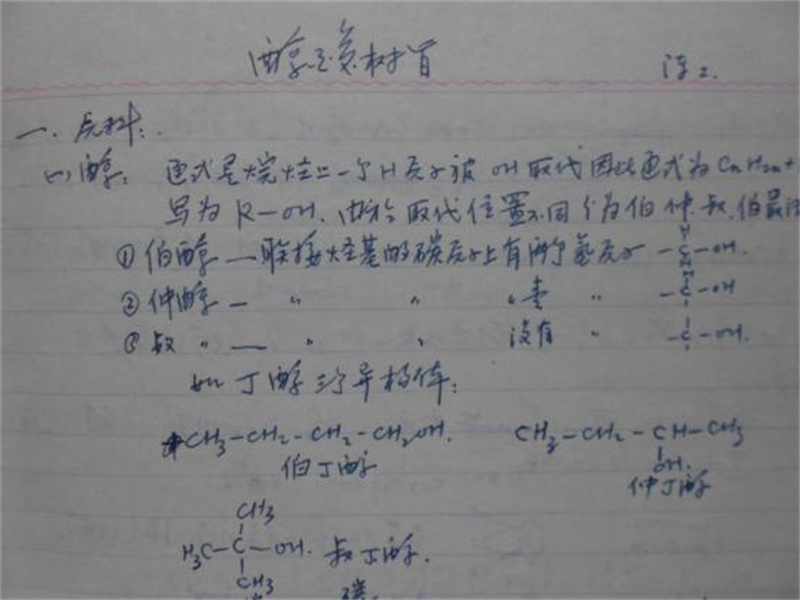 醇是氨树脂 淳2.
一. 原料:
(一) 醇: 通式是烷烃上一个H原子被OH取代因此通式为CnH2n+
写为R-OH. 由于取代位置不同分为伯仲叔, 伯最活
① 伯醇 — 联接烃基的碳原子上有两个氢原子 H -C-OH. H
② 仲醇 — 〃 〃 〃 壹 〃 H -C-OH
③ 叔 〃 — 〃 〃 没有 〃 -C-OH.
如丁醇三个异构体:
CH3-CH2-CH2-CH2OH. CH3-CH2-CH-CH3
OH.
伯丁醇 仲丁醇
CH3
H3C-C-OH. 叔丁醇.
CH3